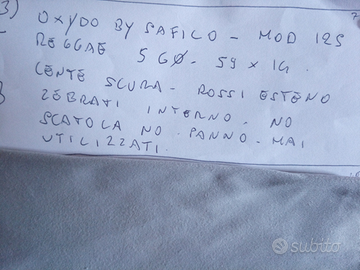 3)
OXYDO BY SAFILO - MOD 125
REGGAE 5GØ - 59 x 14
LENTE SCURA - ROSSI ESTERNO
ZEBRATI INTERNO - NO
SCATOLA NO PANNO - MAI
UTILIZZATI.
subito